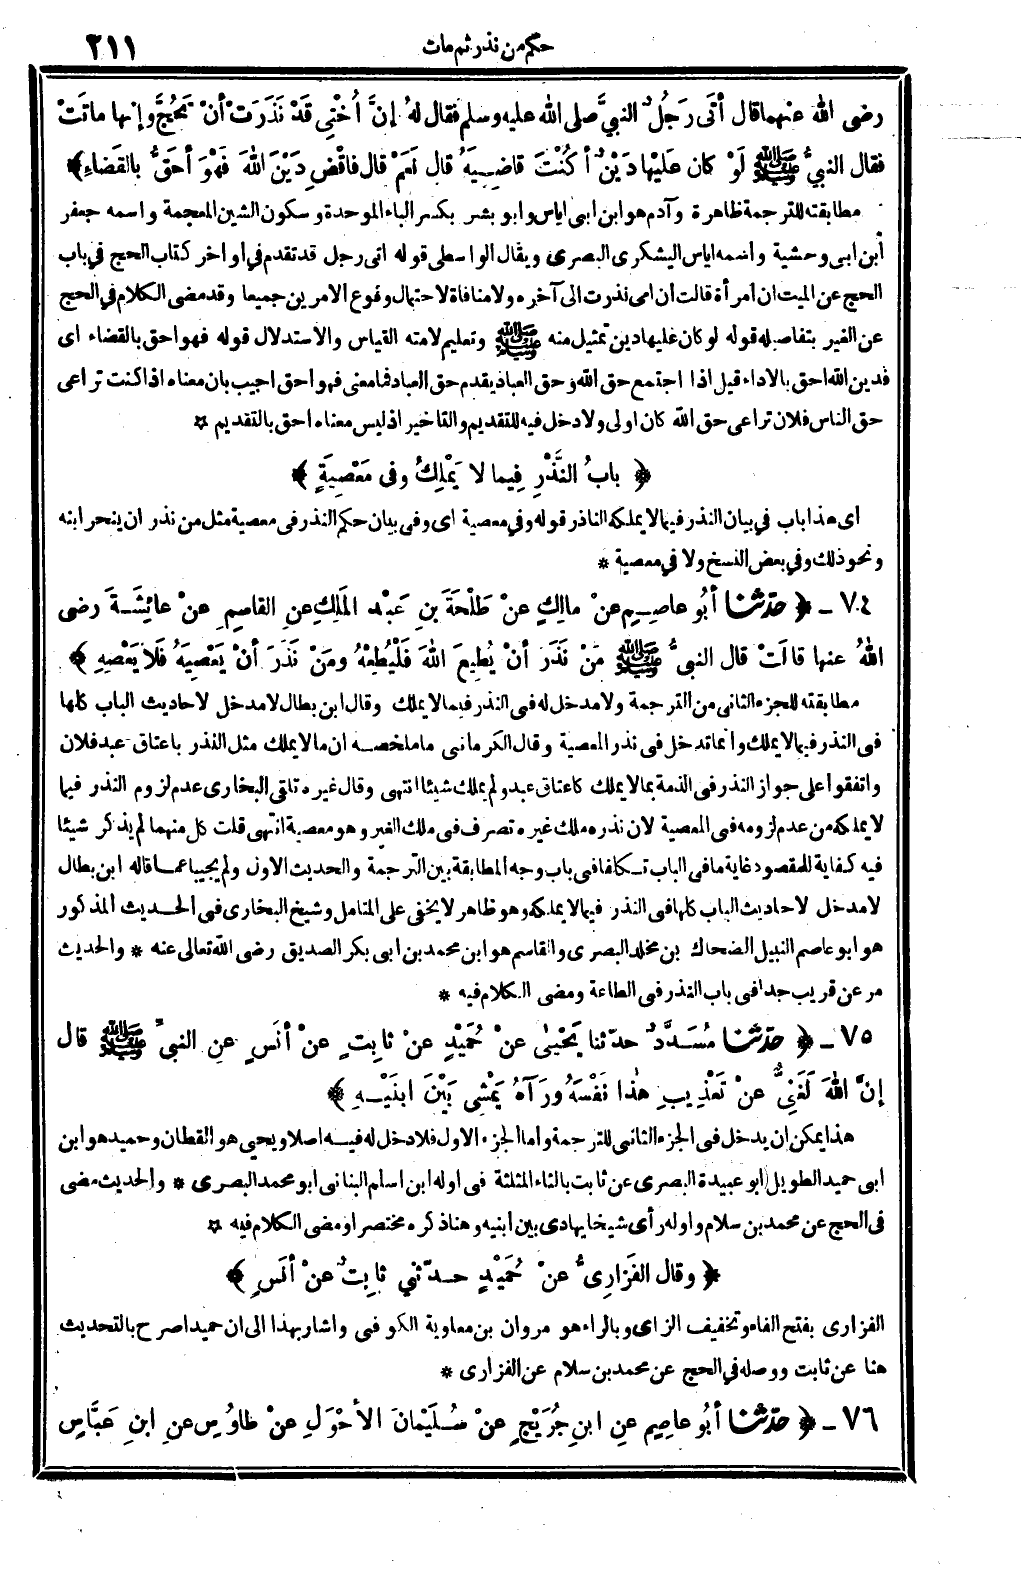 حكم من نذر ثم مات ٢١١
رضى الله عنهما قال أتَى رَجُلٌ النبيَّ صلى الله عليه وسلم فقال لهُ إنَّ أُخْتِى قَدْ نَذَرَتْ أنْ تَحُجَّ وإنها ماتَتْ
فقال النبيُّ ﷺ لَوْ كان عَلَيْها دَيْنٌ أ كُنْتَ قاضِيَهُ قال نَعَمْ قال فاقْضِ دَيْنَ اللهَ فَهْوَ أحَقُّ بالقَضاءِ﴾
مطابقته للترجمة ظاهرة وآدم هو ابن ابى اياس وابو بشر بكسر الباء الموحدة وسكون الشين المعجمة واسمه جعفر
ابن ابى وحشية واسمه اياس اليشكرى البصرى ويقال الواسطى قوله اتى رجل قد تقدم في أواخر كتاب الحج في باب
الحج عن الميت ان امرأة قالت ان امى نذرت الى آخره ولا منافاة لاحتمال وقوع الامرين جميعا وقد مضى الكلام في الحج
عن الغير بتفاصيله قوله لو كان عليها دين تمثيل منه ﷺ وتعليم لامته القياس والاستدلال قوله فهو احق بالقضاء اى
فدين الله احق بالاداء قيل اذا اجتمع حق الله وحق العباد يقدم حق العباد فما معنى فهو احق اجيب بان معناه اذا كنت تراعى
حق الناس فلان تراعى حق الله كان اولى ولا دخل فيه للتقديم والتاخير اذ ليس معناه احق بالتقديم ✡
﴿ بابُ النَّذْرِ فِيما لا يَمْلِكُ وفى مَعْصِيَةٍ ﴾
اى هذا باب في بيان النذر فيما لا يملكه الناذر قوله وفي معصية اى وفى بيان حكم النذر فى معصية مثل من نذر ان ينحر ابنه
ونحو ذلك وفي بعض النسخ ولا في معصية *
٧٤ ـ ﴿ حَدَّثَنا أبُو عاصِمٍ عنْ مالِكٍ عنْ طَلْحَةَ بنِ عَبْدِ المَلِكِ عنِ القاسِمِ عنْ عائِشَةَ رضى
اللهُ عنها قالَتْ قال النبيُّ ﷺ مَنْ نَذَرَ أنْ يُطِيعَ اللهَ فَلْيُطِعْهُ ومَنْ نَذَرَ أنْ يَعْصِيَهُ فَلا يَعْصِهِ ﴾
مطابقته للجزء الثانى من الترجمة ولا مدخل له فى النذر فيما لا يملك وقال ابن بطال لا مدخل لاحاديث الباب كلها
فى النذر فيما لا يملك وانما تدخل فى نذر المعصية وقال الكرمانى ما ملخصه ان ما لا يملك مثل النذر باعتاق عبد فلان
واتفقوا على جواز النذر فى الذمة بما لا يملك كاعتاق عبد ولم يملك شيئا انتهى وقال غيره تلقى البخارى عدم لزوم النذر فيما
لا يملكه من عدم لزومه فى المعصية لان نذره ملك غيره تصرف فى ملك الغير وهو معصية انتهى قلت كل منهما لم يذكر شيئا
فيه كفاية للمقصود غاية ما فى الباب تكلفا فى باب وجه المطابقة بين الترجمة والحديث الاول ولم يجيبا عما قاله ابن بطال
لا مدخل لاحاديث الباب كلها فى النذر فيما لا يملكه وهو ظاهر لا يخفى على المتامل وشيخ البخارى فى الحديث المذكور
هو ابو عاصم النبيل الضحاك بن مخلد البصرى والقاسم هو ابن محمد بن ابى بكر الصديق رضى الله تعالى عنه * والحديث
مر عن قريب جدا فى باب النذر فى الطاعة ومضى الكلام فيه *
٧٥ ـ ﴿ حَدَّثَنا مُسَدَّدٌ حدّثنا يَحْيٰى عنْ حُمَيْدٍ عنْ ثابِتٍ عنْ أنَسٍ عنِ النبيِّ ﷺ قال
إنَّ اللهَ لَغَنِيٌّ عنْ تَعْذِيبِ هٰذا نَفْسَهُ ورَآهُ يَمْشِى بَيْنَ ابْنَيْهِ ﴾
هذا يمكن ان يدخل فى الجزء الثانى للترجمة واما الجزء الاول فلا دخل له فيه اصلا ويحيى هو القطان وحميد هو ابن
ابى حميد الطويل ابو عبيدة البصرى عن ثابت بالثاء المثلثة فى اوله ابن اسلم البنانى ابو محمد البصرى * والحديث مضى
فى الحج عن محمد بن سلام واوله رأى شيخا يهادى بين ابنيه وهنا ذكره مختصرا ومضى الكلام فيه ✡
﴿ وقال الفَزارِىُّ عنْ حُمَيْدٍ حدّثني ثابِتٌ عنْ أنَسٍ ﴾
الفزارى بفتح الفاء وتخفيف الزاى وبالراء هو مروان بن معاوية الكوفى واشار بهذا الى ان حميدا صرح بالتحديث
هنا عن ثابت ووصله في الحج عن محمد بن سلام عن الفزارى *
٧٦ ـ ﴿ حَدَّثَنا أبُو عاصِمٍ عنِ ابنِ جُرَيْجٍ عنْ سُلَيْمانَ الأحْوَلِ عنْ طاوُسٍ عنِ ابنِ عَبَّاسٍ